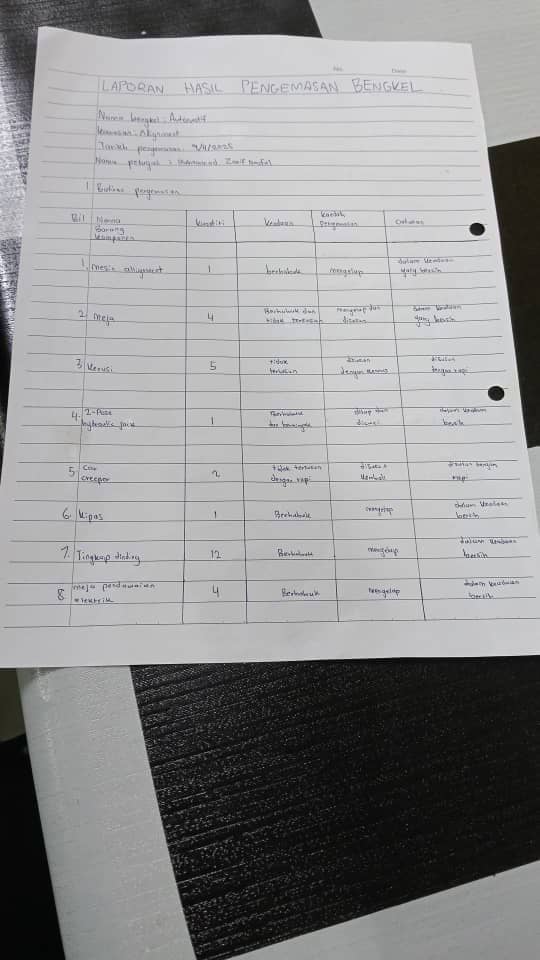 No. Date
LAPORAN HASIL PENGEMASAN BENGKEL
Nama bengkel : Automotif
Kawasan : Alignment
Tarikh pengemasan : 9/4/2025
Nama petugas : Muhammad Zarif
1. Butiran pengemasan
Bil Nama Barang Komponen Kuantiti Keadaan Kaedah Pengemasan Catatan
1. Mesin allignment 1 berhabuk mengelap dalam keadaan yang bersih
2. Meja 4 Berhabuk dan tidak tersusun mengelap dan disusun dalam keadaan yang bersih
3. Kerusi 5 tidak tersusun disusun dengan kemas disusun dengan rapi
4. 2-Post hydraulic jack 1 Berhabuk dan berminyak dilap dan dicuci dalam keadaan bersih
5. Car creeper 2 tidak tersusun dengan rapi disusun kembali disusun dengan rapi
6. Kipas 1 Berhabuk mengelap dalam keadaan bersih
7. Tingkap dinding 12 Berhabuk mengelap dalam keadaan bersih
8. meja pendawaian elektrik 4 Berhabuk mengelap dalam keadaan bersih